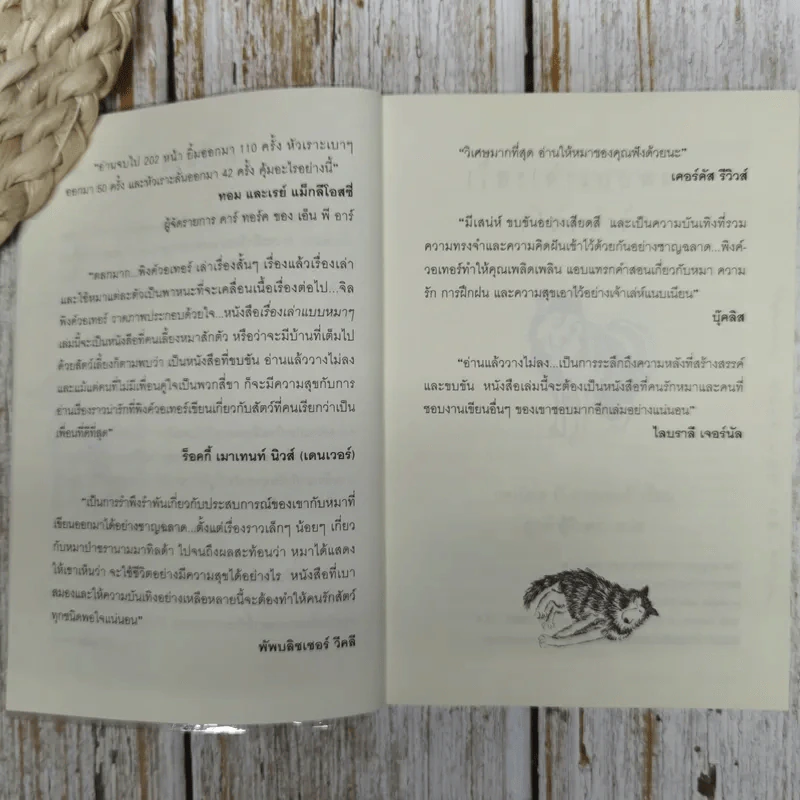 "อ่านจบไป 202 หน้า ยิ้มออกมา 110 ครั้ง หัวเราะเบาๆ
ออกมา 50 ครั้ง และหัวเราะลั่นออกมา 42 ครั้ง คุ้มอะไรอย่างนี้"
ทอม และเรย์ แม็กลีโอสซี่
ผู้จัดรายการ คาร์ ทอร์ค ของ เอ็น พี อาร์
"ตลกมาก...พิงค์วอเทอร์ เล่าเรื่องสั้นๆ เรื่องแล้วเรื่องเล่า
และใช้หมาแต่ละตัวเป็นพาหนะที่จะเคลื่อนเนื้อเรื่องต่อไป...จิล
พิงค์วอเทอร์ วาดภาพประกอบด้วยใจ...หนังสือเรื่องเล่าแบบหมาๆ
เล่มนี้จะเป็นหนังสือที่คนเลี้ยงหมาสักตัว หรือว่าจะมีบ้านที่เต็มไป
ด้วยสัตว์เลี้ยงก็ตามพบว่า เป็นหนังสือที่ขบขัน อ่านแล้ววางไม่ลง
และแม้แต่คนที่ไม่มีเพื่อนคู่ใจเป็นพวกสี่ขา ก็จะมีความสุขกับการ
อ่านเรื่องราวน่ารักที่พิงค์วอเทอร์เขียนเกี่ยวกับสัตว์ที่คนเรียกว่าเป็น
เพื่อนที่ดีที่สุด"
ร็อคกี้ เมาเทนท์ นิวส์ (เดนเวอร์)
"เป็นการรำพึงรำพันเกี่ยวกับประสบการณ์ของเขากับหมาที่
เขียนออกมาได้อย่างชาญฉลาด...ตั้งแต่เรื่องราวเล็กๆ น้อยๆ เกี่ยว
กับหมาป่าชรานามมาทิลด้า ไปจนถึงผลสะท้อนว่า หมาได้แสดง
ให้เขาเห็นว่า จะใช้ชีวิตอย่างมีความสุขได้อย่างไร หนังสือที่เบา
สมองและให้ความบันเทิงอย่างเหลือหลายนี้จะต้องทำให้คนรักสัตว์
ทุกชนิดพอใจแน่นอน"
พัพบลิชเชอร์ วีคลี
"วิเศษมากที่สุด อ่านให้หมาของคุณฟังด้วยนะ"
เคอร์คัส รีวิวส์
"มีเสน่ห์ ขบขันอย่างเสียดสี และเป็นความบันเทิงที่รวม
ความทรงจำและความคิดฝันเข้าไว้ด้วยกันอย่างชาญฉลาด...พิงค์-
วอเทอร์ทำให้คุณเพลิดเพลิน แอบแทรกคำสอนเกี่ยวกับหมา ความ
รัก การฝึกฝน และความสุขเอาไว้อย่างเจ้าเล่ห์แนบเนียน"
บุ๊คลิส
"อ่านแล้ววางไม่ลง...เป็นการระลึกถึงความหลังที่สร้างสรรค์
และขบขัน หนังสือเล่มนี้จะต้องเป็นหนังสือที่คนรักหมาและคนที่
ชอบงานเขียนอื่นๆ ของเขาชอบมากอีกเล่มอย่างแน่นอน"
ไลบรารี เจอร์นัล